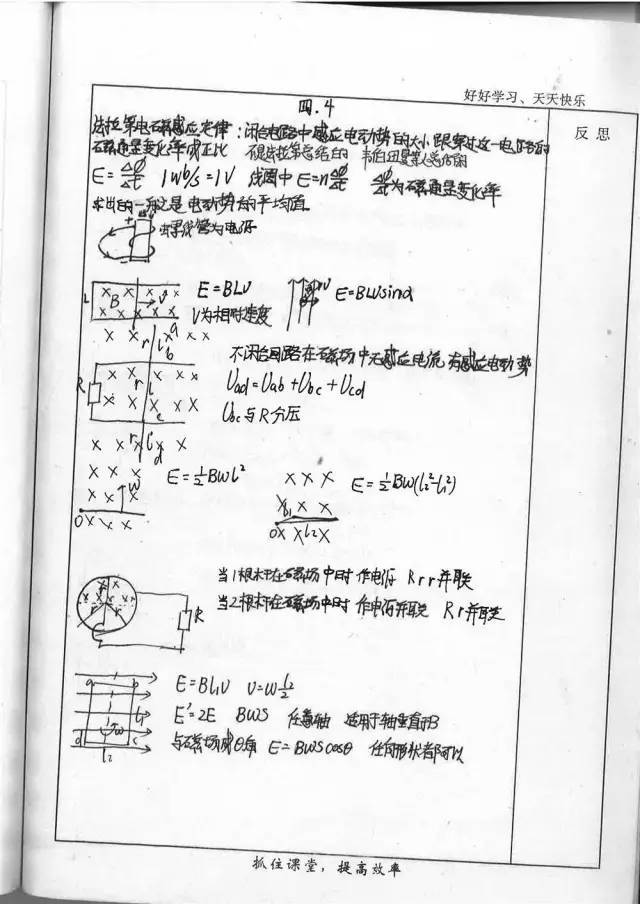 好好学习、天天快乐
反思
四.4
法拉第电磁感应定律:闭合电路中感应电动势的大小跟穿过这一电路的
磁通量变化率成正比 不是法拉第总结的
E=Δφ/Δt 1wb/s=1V 线圈中E=nΔφ/Δt Δφ/Δt为磁通量变化率
求出的一般是电动势的平均值
螺线管为电源
L B v E=BLV v E=BLVsinα
V为相对速度
r a
b
不闭合回路在磁场中无感应电流 有感应电动势
R r L Uad=Uab+Ubc+Ucd
c Ubc与R分压
r d
w E=½BWL² E=½BW(l₂²-l₁²)
O l₁ O l₂
当1根杆在磁场中时 作电源 R r r 并联
R 当2根杆在磁场中时 作电源并联 R r 并联
a b E=BL₁V V=W l₂/2
l₁ w E'=2E BWS 任意轴 适用于轴垂直于B
d l₂ c 与磁场成θ角 E=BWScosθ 任何形状都可以
抓住课堂,提高效率